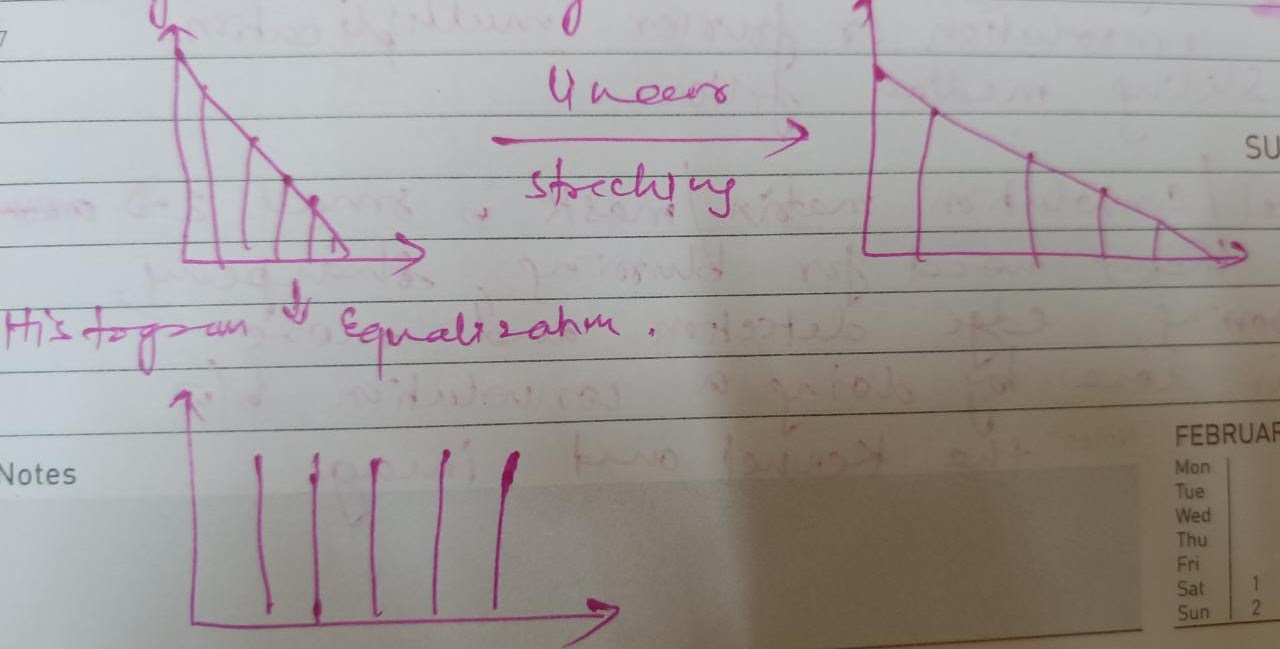 Linear
streching
SU
Histogram Equalization.
Notes
FEBRUAR
Mon
Tue
Wed
Thu
Fri
Sat 1
Sun 2